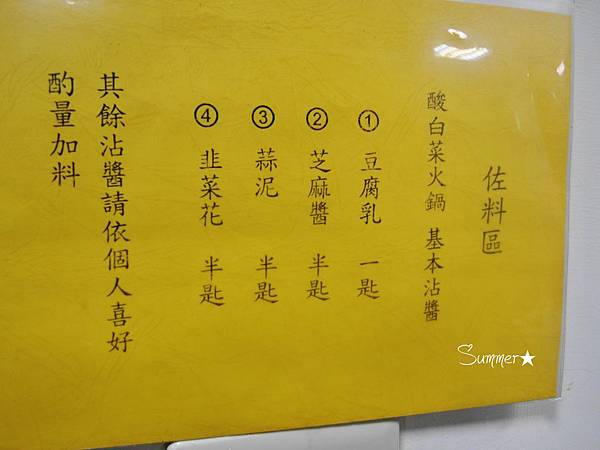 佐料區
酸白菜火鍋 基本沾醬
① 豆腐乳 一匙
② 芝麻醬 半匙
③ 蒜泥 半匙
④ 韭菜花 半匙
其餘沾醬請依個人喜好
酌量加料
Summer★